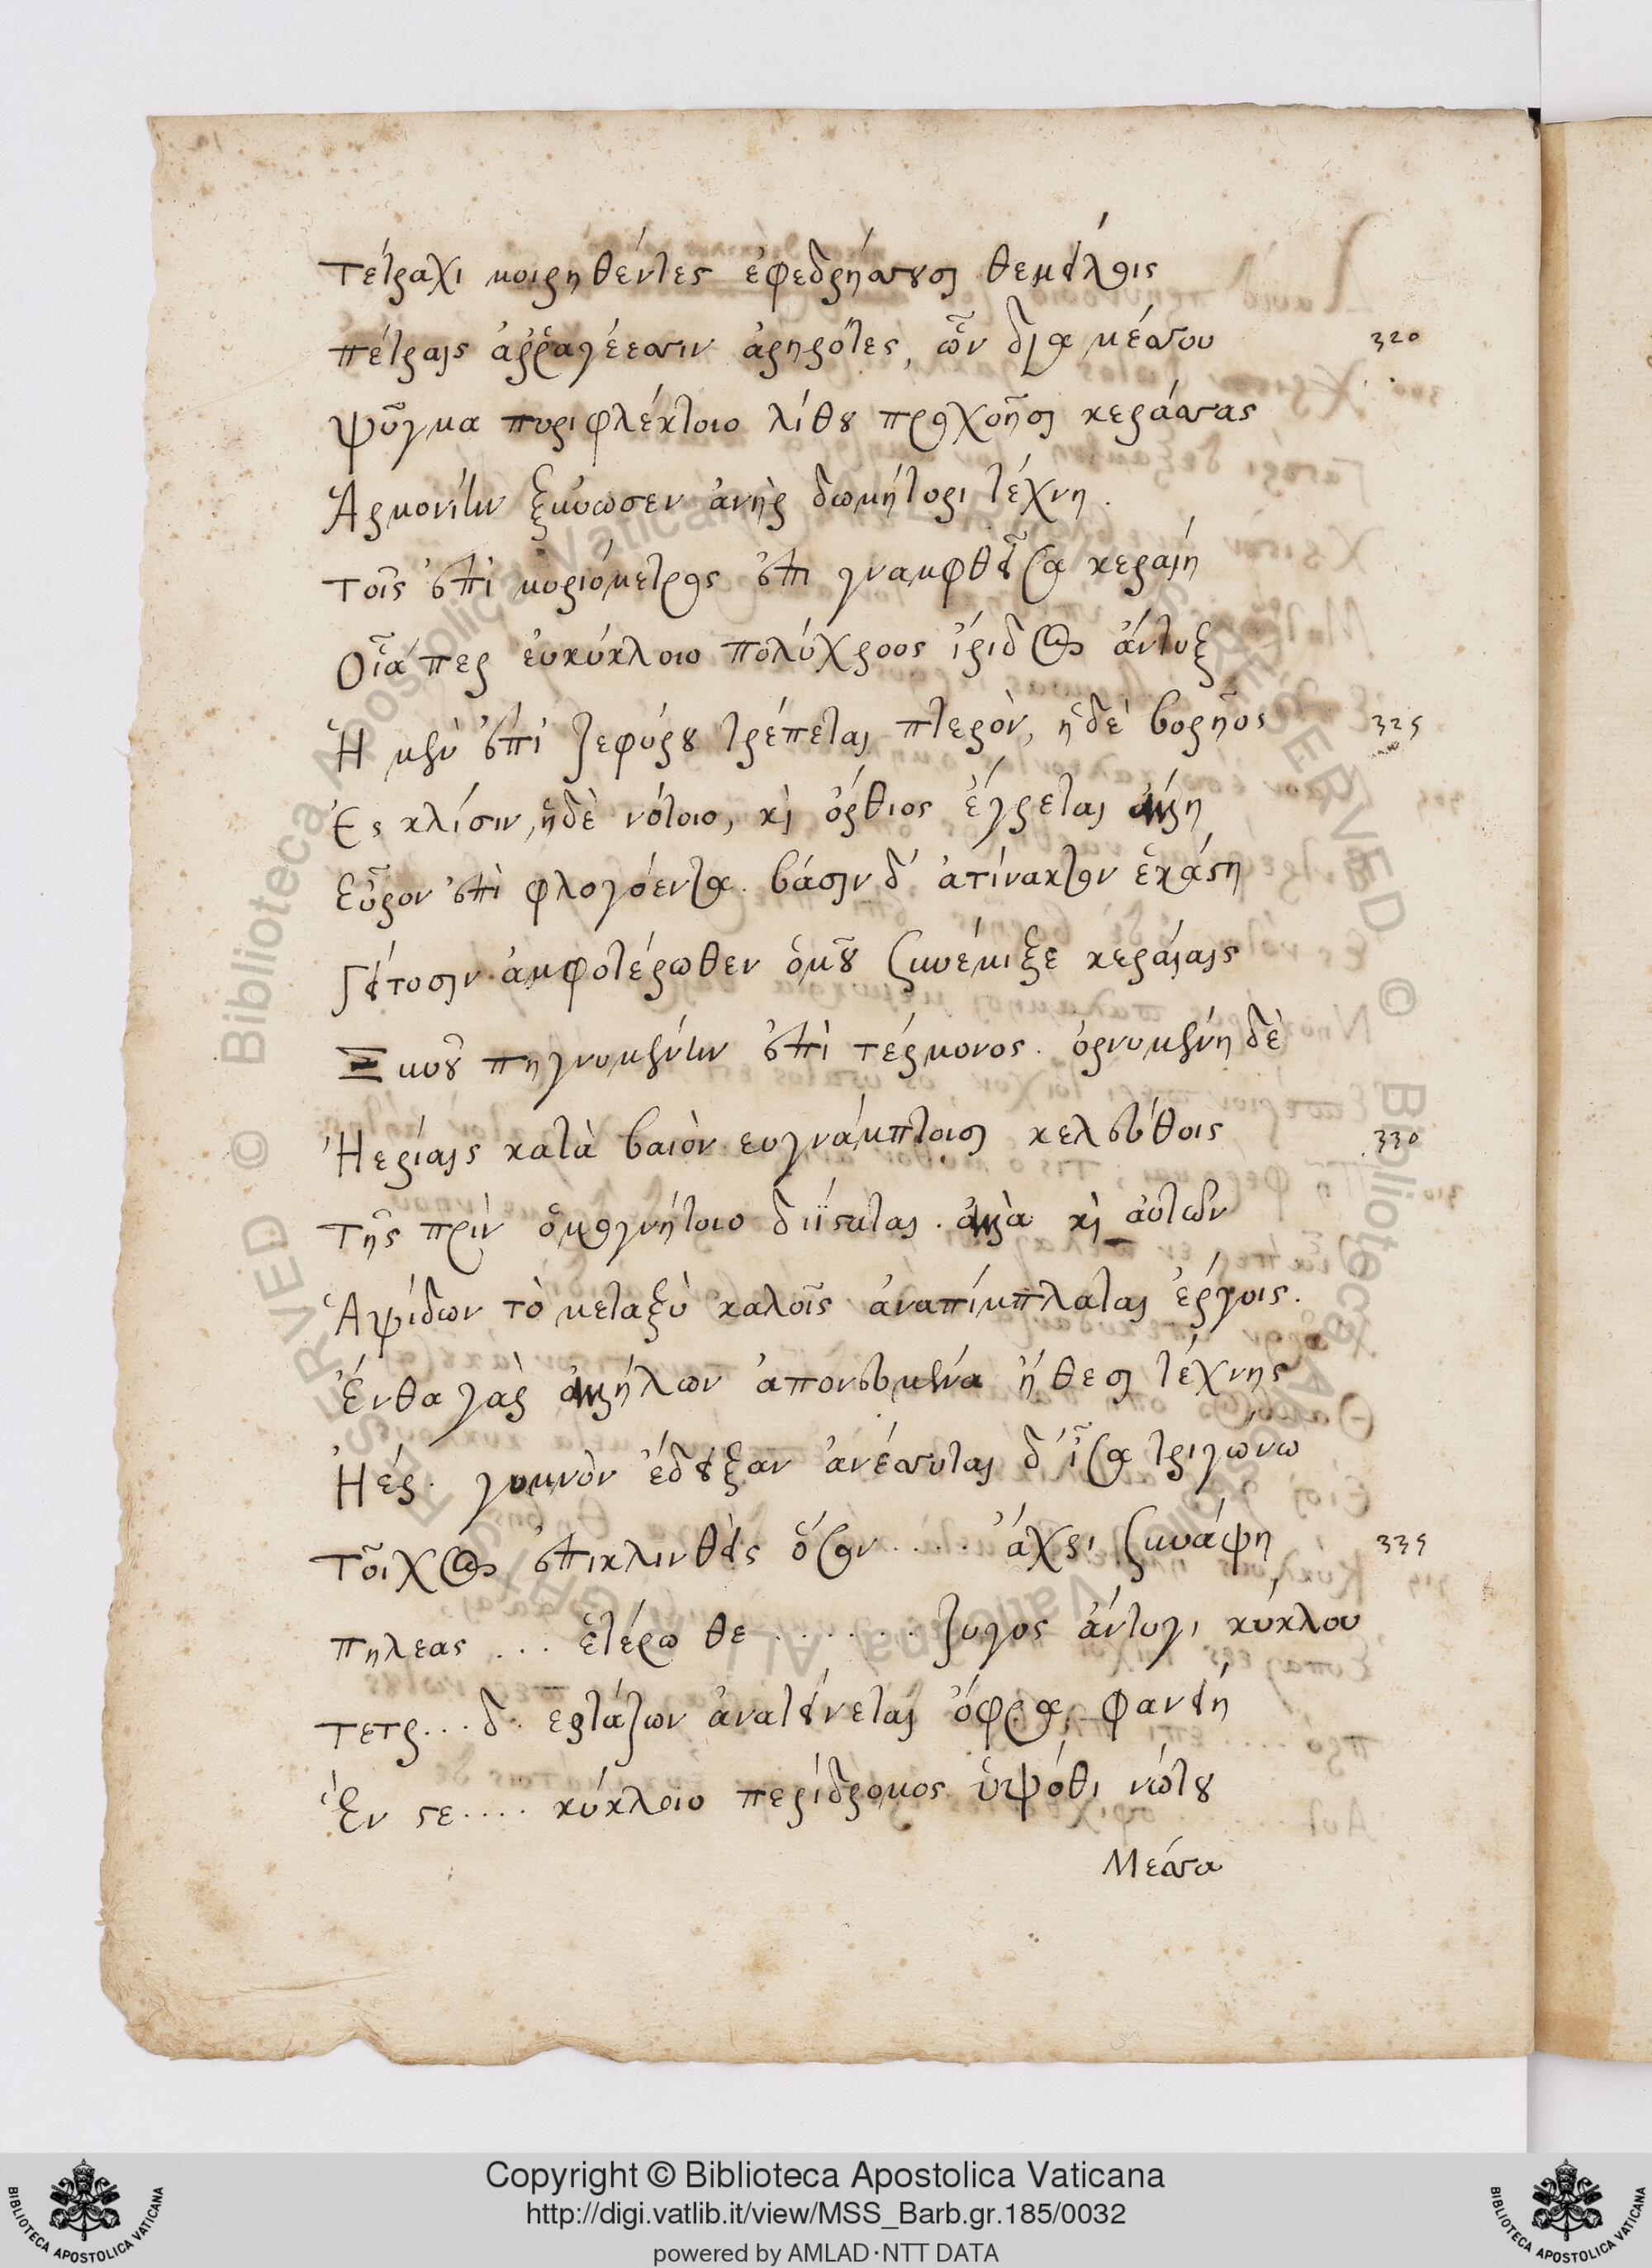 τέτραχι μοιρηθέντες ἐφεδρήσουσι θεμείλοις
πέτραις ἀῤῥαγέεσσιν ἀρηρότες, ὧν δια μέσσου 320
ψῦγμα πυριφλέκτοιο λίθου προχοῇσι κεράσσας
Ἁρμονίην ξύνωσεν ἀνὴρ δωμήτορι τέχνη.
τοῖς ἐπὶ μυριόμετρος ἐπι γναμφθεῖσα κεραίη
Οἷά περ ἐυκύκλοιο πολύχροος ἴριδος ἄντυξ
Ἡ μὲν ἐπὶ ζεφύρου τρέπεται πτερὸν, ἡ δὲ βορῆος 325
Ἐς κλίσιν, ἡδὲ νότοιο, καὶ ὄρθιος ἔγρεται ἄλλη
Εὖρον ἐπὶ φλογόεντα. βάσιν δ' ἀτίνακτον ἑκάστη
Γείτοσιν ἀμφοτέρωθεν ὁμοῦ συνέμιξε κεραίαις
Ξυνοῦ πηγνυμένην ἐπὶ τέρμονος. ὀρνυμένη δὲ
Ἠερίαις κατὰ βαιὸν ευγνάμπτοισι κελεύθοις 330
τῆς πρὶν ὁμογνήτοιο διίσταται. ἀλλὰ καὶ αὐτῶν
Ἁψίδων τὸ μεταξὺ καλοῖς ἀναπίμπλαται ἔργοις.
Ἔνθα γὰρ ἀλλήλων ἀπονευμένα ἤθεσι τέχνης
Ἠέρ. γυμνὸν ἔδειξαν ἀνέσσυται δ' ἶσα τριγώνω
Τοῖχος ἐπικλινθεὶς ὅσον .... ἄχρι συνάψη 335
πηλεας ... ἑτέρω θε ....... ζυγος ἄντυγι κύκλου
τετρ... δ.. ερτάζων ἀνατείνεται ὄφρα φανείη
Ἐν στε.... κύκλοιο περίδρομος ὑψόθι νώτου
Μέσσα
Copyright © Biblioteca Apostolica Vaticana
http://digi.vatlib.it/view/MSS_Barb.gr.185/0032
powered by AMLAD·NTT DATA